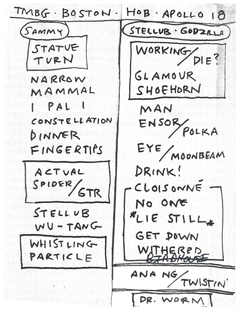 TMBG · BOSTON · HOB · APOLLO 18
SAMMY
STATUE
TURN
NARROW
MAMMAL
I PAL I
CONSTELLATION
DINNER
FINGERTIPS
ACTUAL
SPIDER/GTR
STELLUB
WU-TANG
WHISTLING
PARTICLE
STELLUB · GODZILLA
WORKING/DIE?
GLAMOUR
SHOEHORN
MAN
ENSOR/POLKA
EYE/MOONBEAM
DRINK!
CLOISONNÉ
NO ONE
*LIE STILL*
GET DOWN
WITHERED
BIRDHOUSE
ANA NG/TWISTIN'
DR. WORM